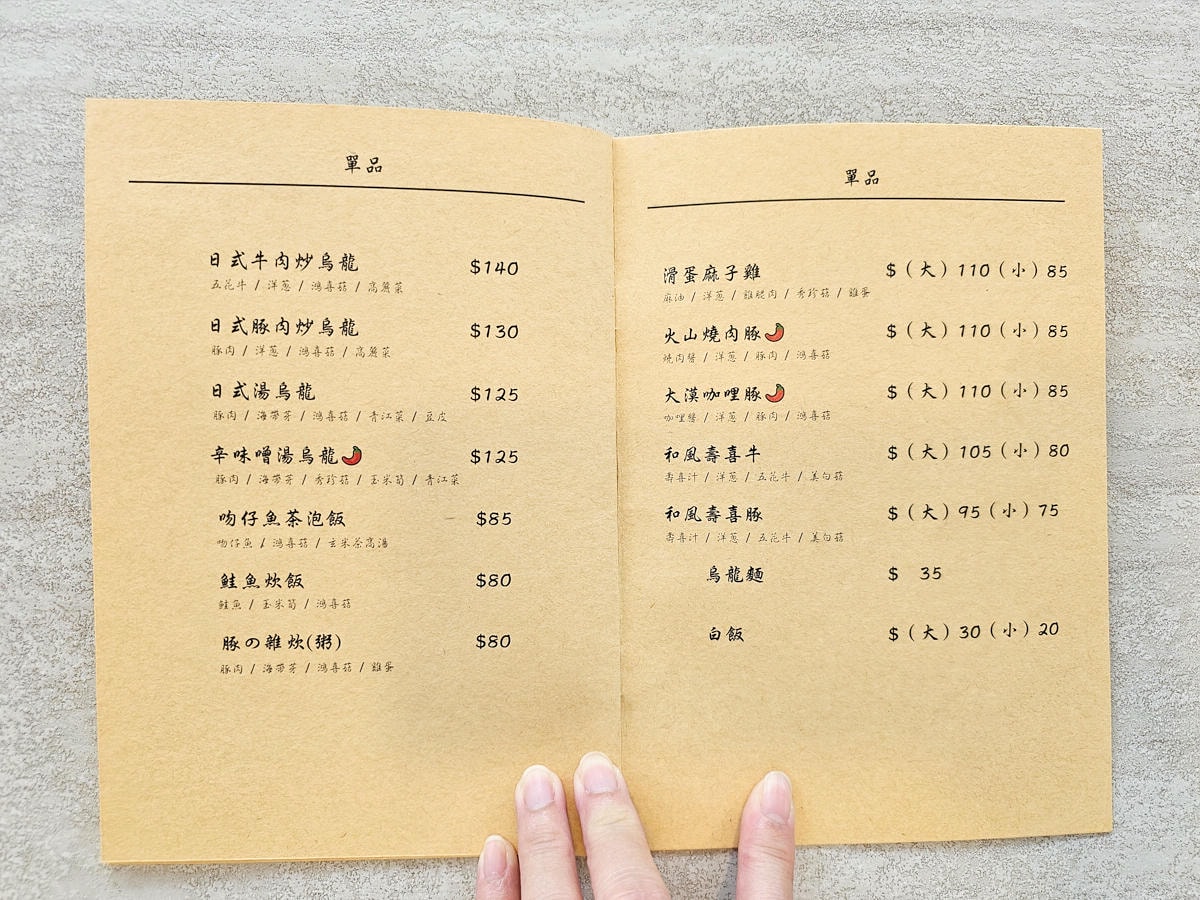 單品
日式牛肉炒烏龍 $140
五花牛 / 洋蔥 / 鴻喜菇 / 高麗菜
日式豚肉炒烏龍 $130
豚肉 / 洋蔥 / 鴻喜菇 / 高麗菜
日式湯烏龍 $125
豚肉 / 海帶芽 / 鴻喜菇 / 青江菜 / 豆皮
辛味噌湯烏龍 $125
豚肉 / 海帶芽 / 秀珍菇 / 玉米筍 / 青江菜
吻仔魚茶泡飯 $85
吻仔魚 / 鴻喜菇 / 玄米茶高湯
鮭魚炊飯 $80
鮭魚 / 玉米筍 / 鴻喜菇
豚の雜炊(粥) $80
豚肉 / 海帶芽 / 鴻喜菇 / 雞蛋
單品
滑蛋麻子雞 $（大）110（小）85
麻油 / 洋蔥 / 雞腿肉 / 秀珍菇 / 雞蛋
火山燒肉豚 $（大）110（小）85
燒肉醬 / 洋蔥 / 豚肉 / 鴻喜菇
大漠咖哩豚 $（大）110（小）85
咖哩醬 / 洋蔥 / 豚肉 / 鴻喜菇
和風壽喜牛 $（大）105（小）80
壽喜汁 / 洋蔥 / 五花牛 / 美白菇
和風壽喜豚 $（大）95（小）75
壽喜汁 / 洋蔥 / 五花牛 / 美白菇
烏龍麵 $ 35
白飯 $（大）30（小）20